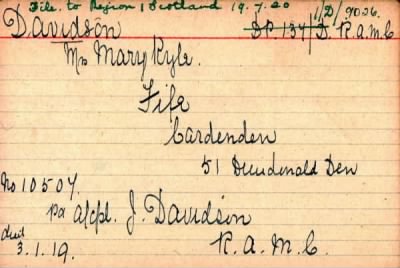 File. to Region 1 Scotland 19.7.20 1/D/9026.
Davidson DP 134/D R.A.M.C
Mrs Mary Kyle.
Fife
Cardenden
51 Dundonald Den
No 10507.
Pa a/cpl. J. Davidson
died
3.1.19. R.A.M.C.